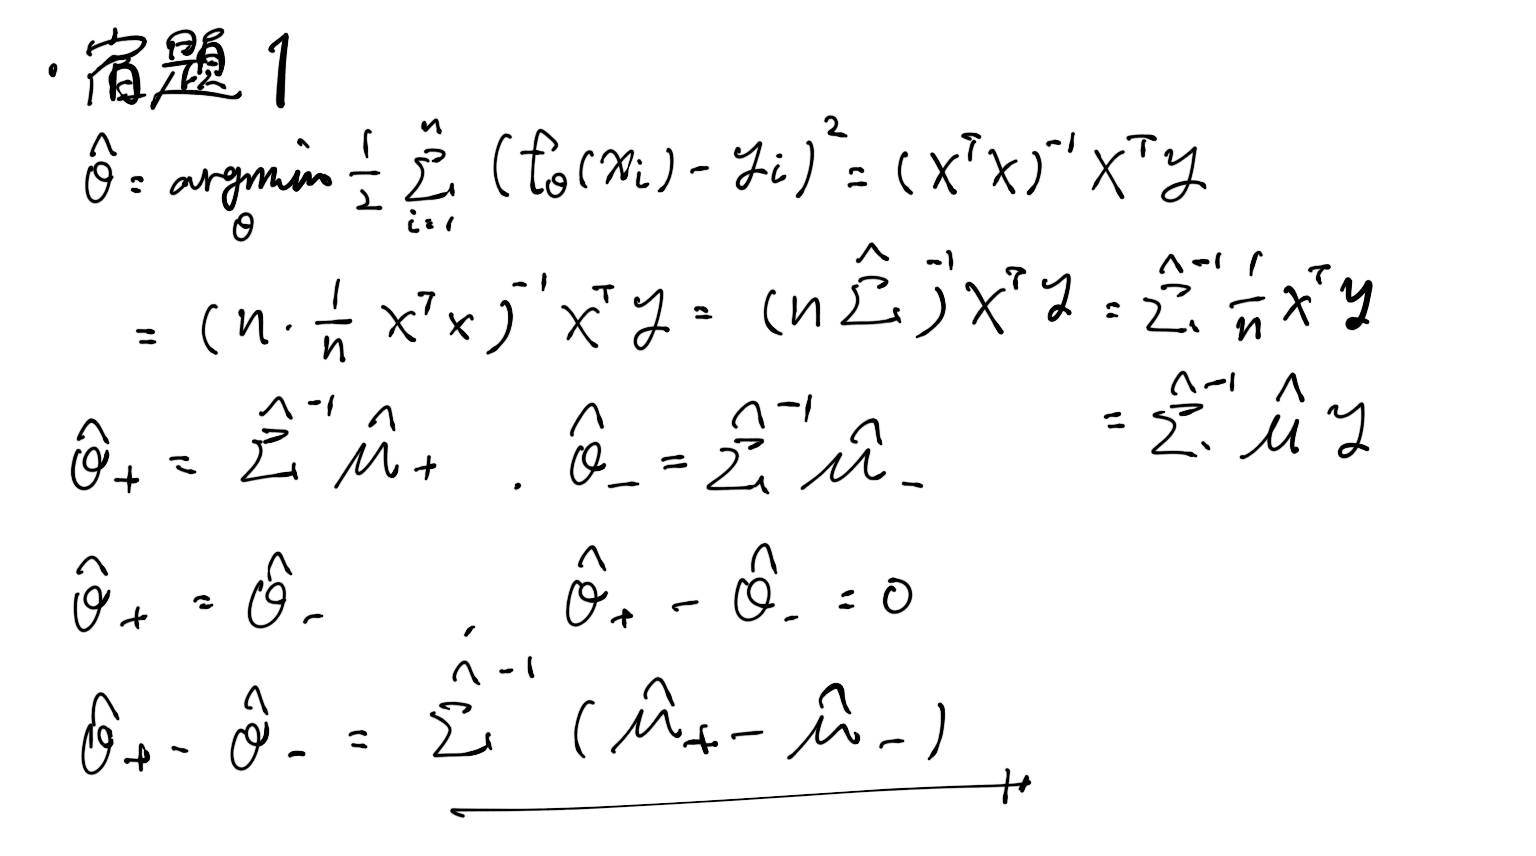 ・宿題1
θ̂ = argmin_θ 1/2 Σ_{i=1}^{n} (f_θ(x_i) - y_i)^2 = (X^T X)^{-1} X^T y
= (n · 1/n X^T X)^{-1} X^T y = (n Σ̂)^{-1} X^T y = Σ̂^{-1} 1/n X^T y
= Σ̂^{-1} μ̂ y
θ̂_+ = Σ̂^{-1} μ̂_+ . θ̂_- = Σ̂^{-1} μ̂_-
θ̂_+ = θ̂_- θ̂_+ - θ̂_- = 0
θ̂_+ - θ̂_- = Σ̂^{-1} (μ̂_+ - μ̂_-)